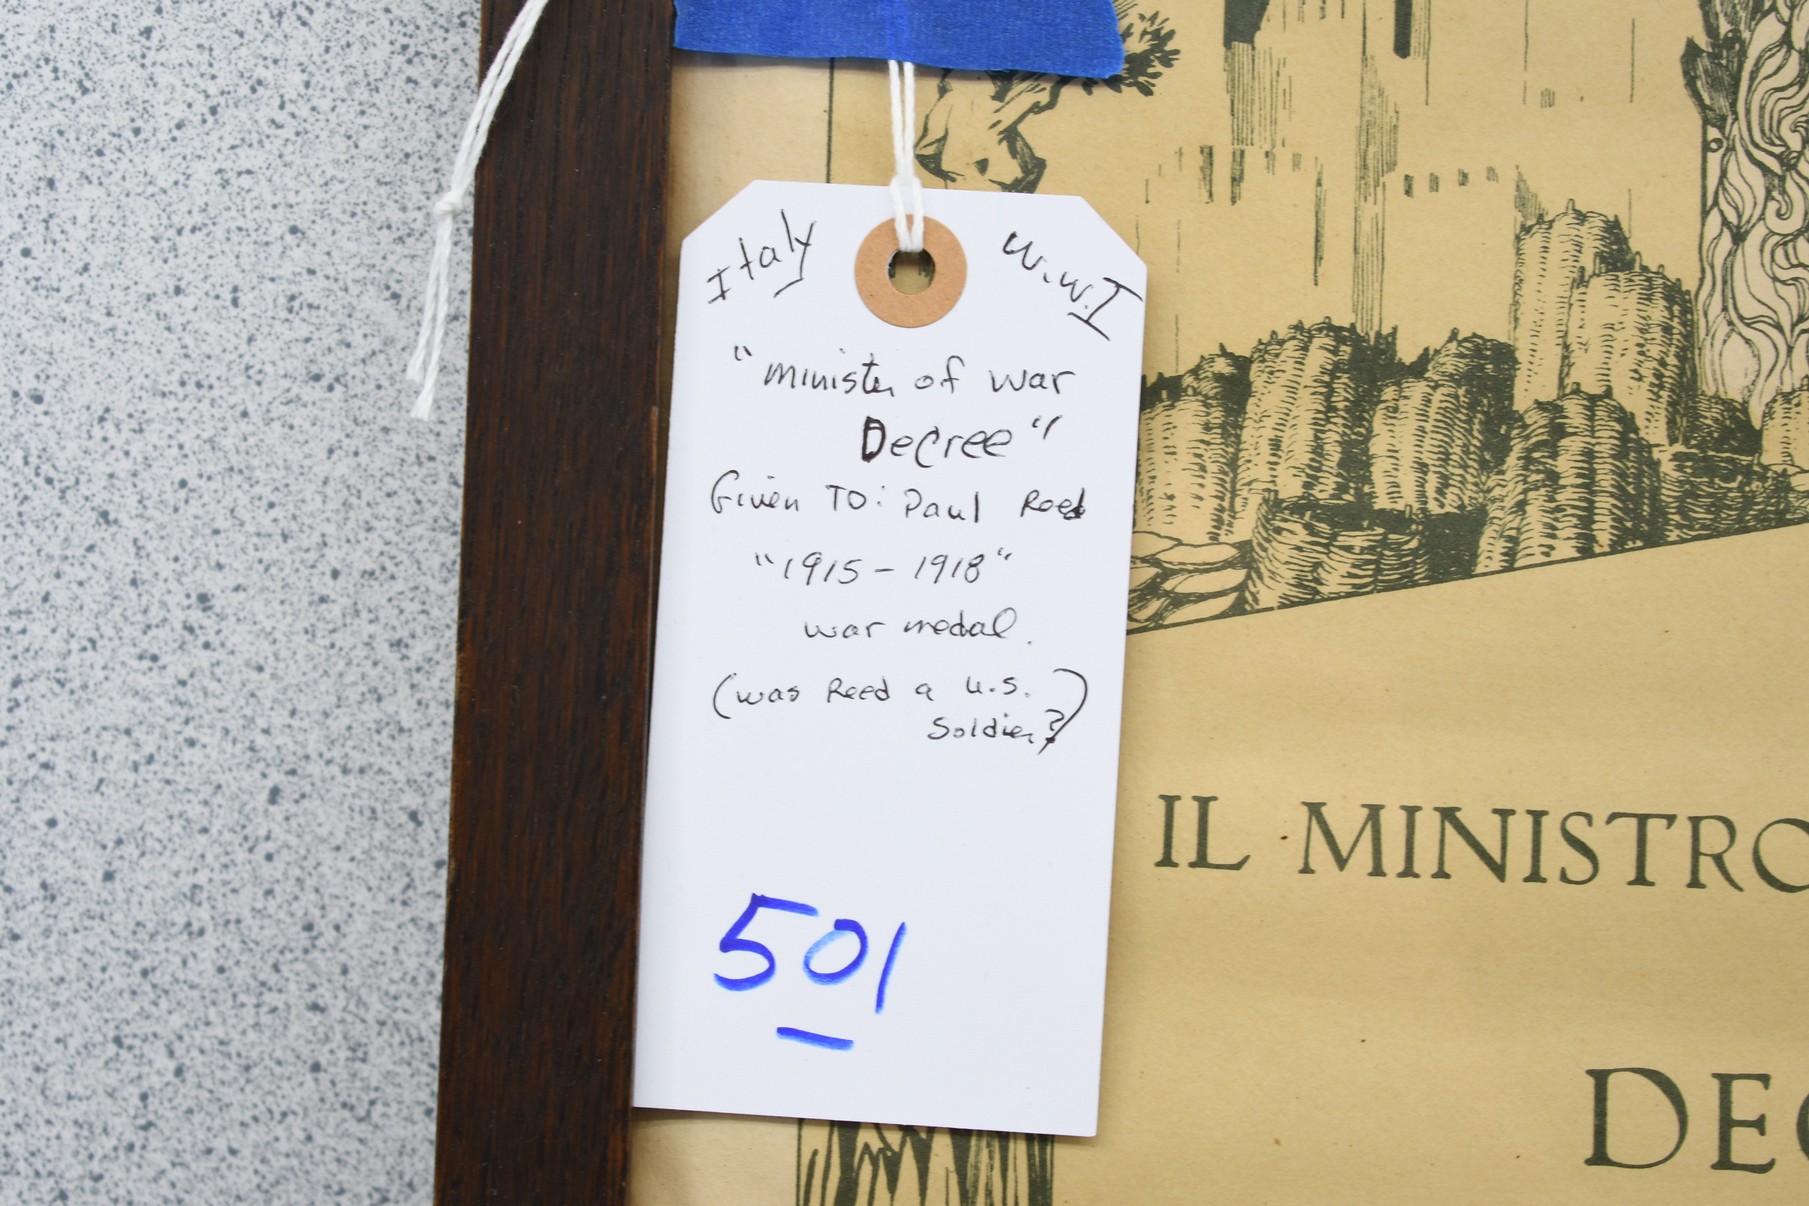 Italy
W.W.I
"minister of war
Decree"
Given To: Paul Reed
"1915-1918"
war medal.
(was Reed a U.S.
Soldier?)
501
IL MINISTRO
DEC